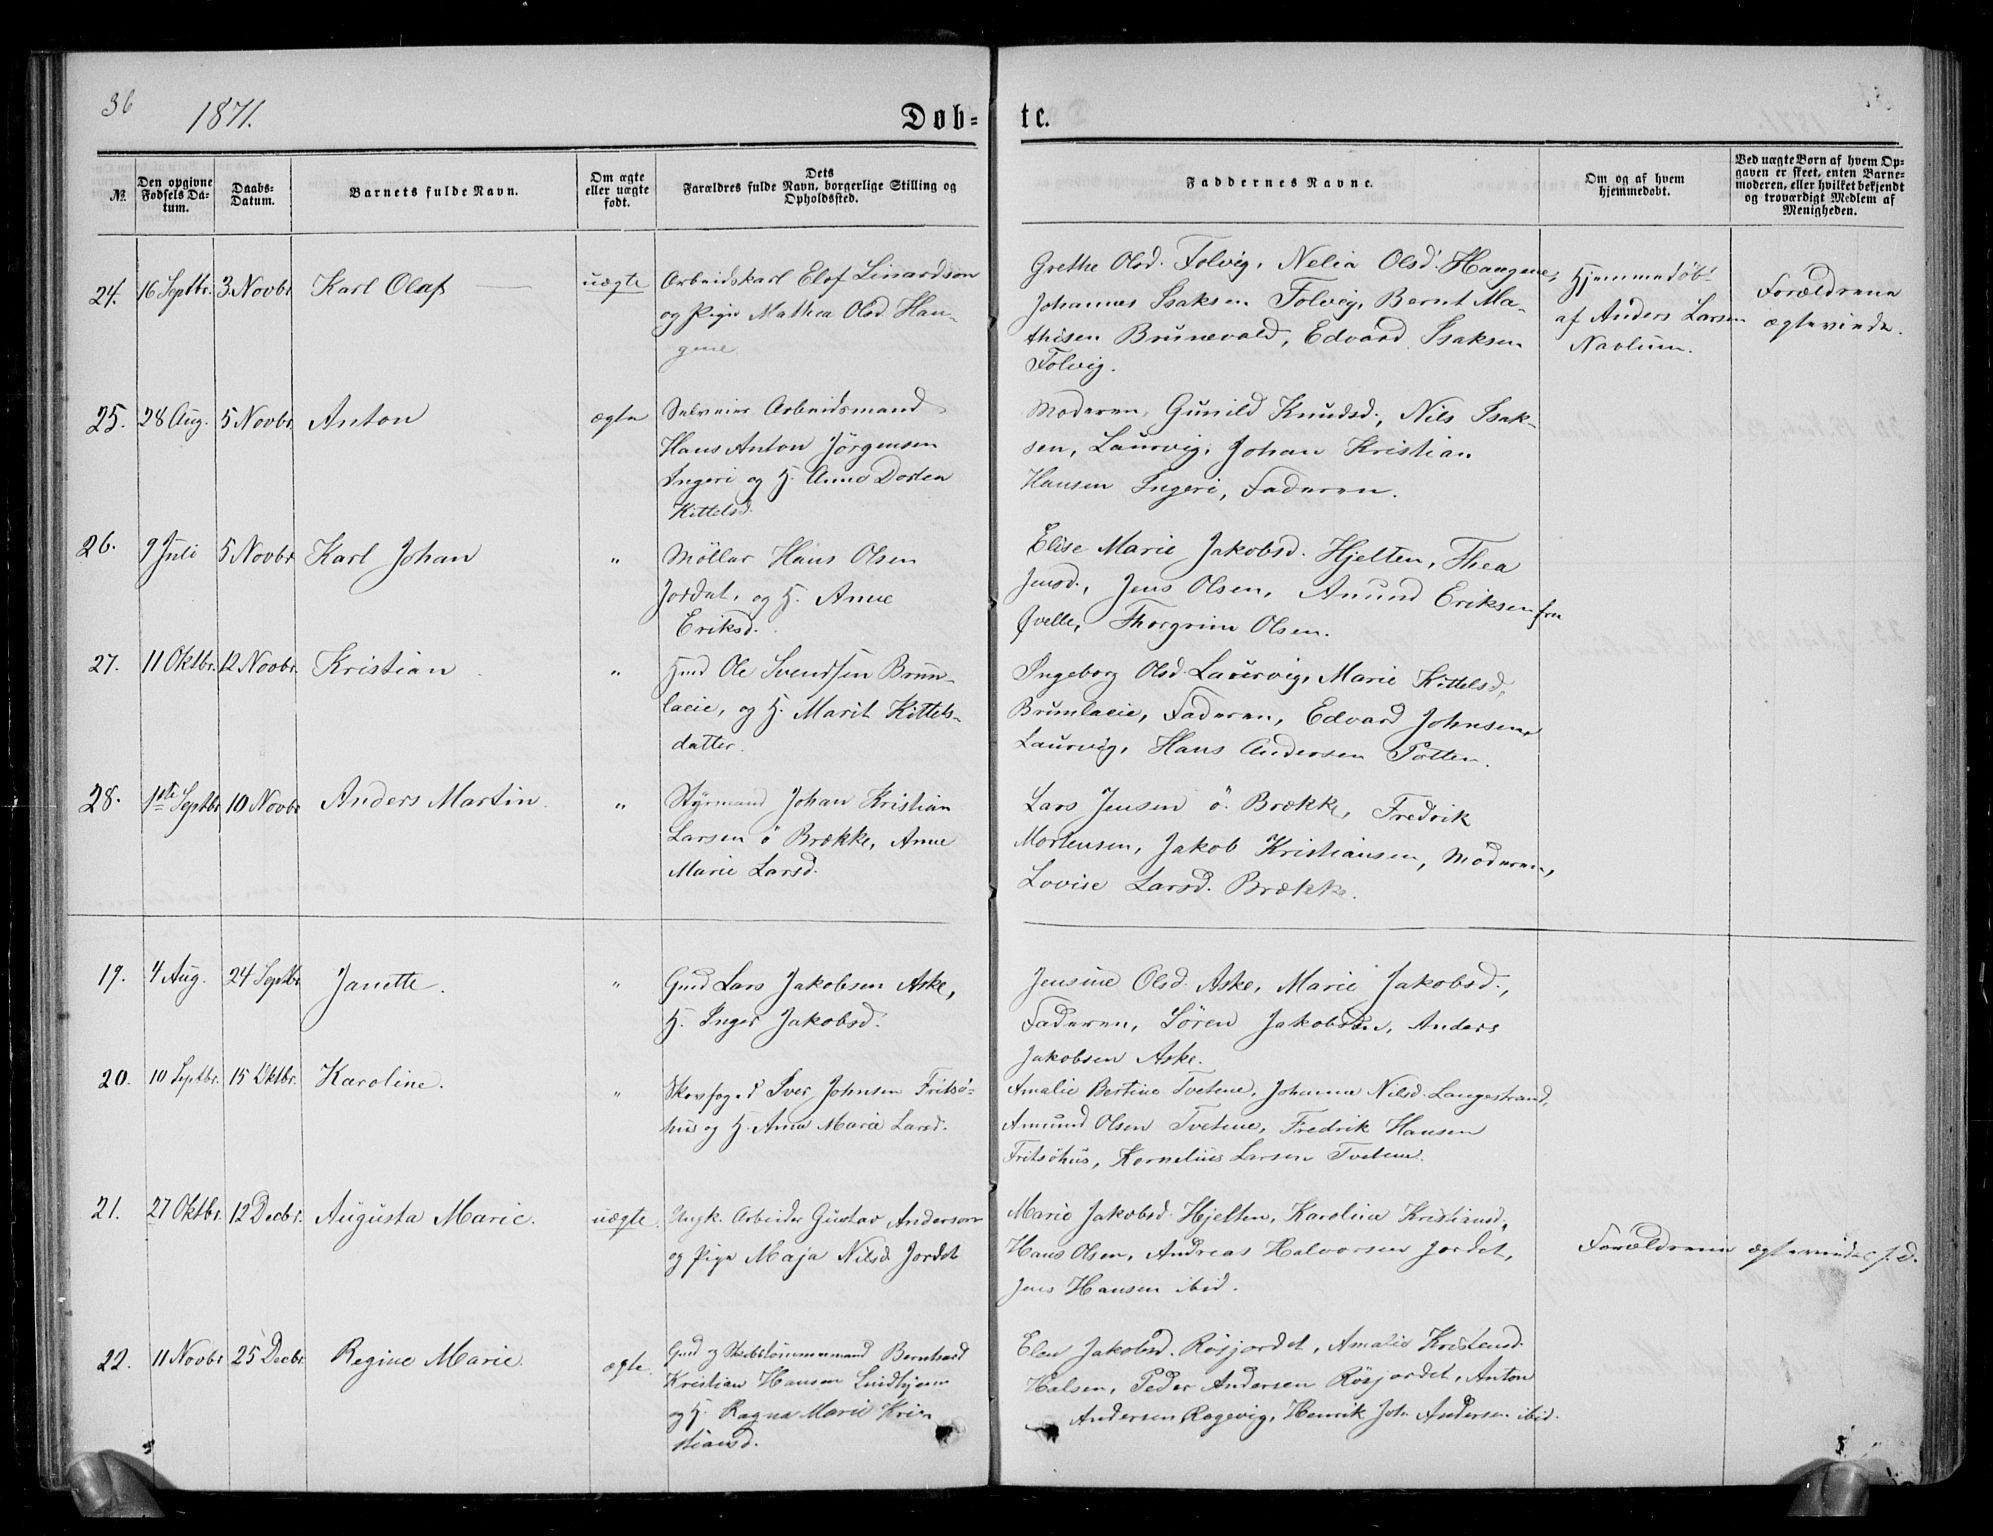 36
1871.
Døb-
te.
№.
Den opgivne
Fødsels Da-
tum.
Daabs-
Datum.
Barnets fulde Navn.
Om ægte
eller uægte
født.
Dets
Forældres fulde Navn, borgerlige Stilling og
Opholdssted.
Faddernes Navne.
Om og af hvem
hjemmedøbt.
Ved uægte Børn af hvem Op-
gaven er skeet, enten Barne-
moderen, eller hvilket bekjendt
og troværdigt Medlem af
Menigheden.
24. 16 Septbr. 3 Novbr Karl Olaf uægte
Arbeidskarl Elof Linardson
og Pige Mathea Olsd. Hau-
gene.
Grethe Olsd. Folvig, Nelia Olsd. Haugene,
Johannes Isaksen Folvig, Bernt Ma-
thisen Brunevald, Edvard Isaksen
Folvig.
Hjemmedøbt
af Anders Larsen
Navlum.
Forældrene
ægteviede.
25. 28 Aug. 5 Novbr Anton ægte
Selveier Arbeidsmand
Hans Anton Jörgensen
Ingeri og H. Anne Dortea
Kittelsd.
Moderen, Gunild Knudsd., Nils Isak-
sen, Laurvig, Johan Kristian
Hansen Ingeri, Faderen.
26. 9 Juli 5 Novbr Karl Johan "
Möller Hans Olsen
Jordet, og H. Anne
Eriksd.
Elise Marie Jakobsd. Hjelten, Thea
Jensd., Jens Olsen, Amund Eriksen fra
Qvelle, Thorgrim Olsen.
27. 11 Oktbr. 12 Novbr. Kristian "
Gmd Ole Svendsen Brun-
laeie, og H. Marit Kittels-
datter.
Ingeborg Olsd. Laurvig, Marie Kittelsd,
Brunlaeie, Faderen, Edvard Johnsen,
Laurvig, Hans Andersen Potten.
28. 1ste Septbr 10 Novbr Anders Martin "
Styrmand Johan Kristian
Larsen ö Brække, Anne
Marie Larsd.
Lars Jensen ö. Brække, Fredrik
Mortensen, Jakob Kristiansen, Moderen,
Lovise Larsd. Brække.
19. 4 Aug. 24 Septbr Janette. "
Gmd Lars Jakobsen Aske,
H. Inger Jakobsd.
Jensine Olsd. Aske, Marie Jakobsd.,
Faderen, Sören Jakobsen, Anders
Jakobsen Aske.
20. 10 Septbr. 15 Oktbr. Karoline. "
Skovfoged Iver Johnsen Fritsö-
hus og H. Anne Marie Larsd.
Amalie Bertine Tvetene, Johanne Nilsd. Langestrand,
Amund Olsen Tvetene, Fredrik Hansen
Fritsöhus, Kornelius Larsen Tvetene.
21. 27 Oktbr. 12 Decbr. Augusta Marie. uægte.
Ungk. Arbeider Gustav Anderson
og Pige Maja Nilsd Jordet
Marie Jakobsd. Hjelten, Karoline Kristiansd,
Hans Olsen, Andreas Halvorsen Jordet,
Jens Hansen ibid.
Forældrene ægteviede s. D.
22. 11 Novbr 25 Decbr. Regine Marie. ægte.
Gmd og Skibstömmermand Bernhard
Kristian Hansen Lindhjem
og H. Ragna Marie Kri-
stiansd.
Elen Jakobsd. Rösjordet, Amalie Kristensd.
Halsen, Peder Andersen Rösjordet, Anton
Andersen Ragevig, Henrik Joh. Andersen ibid.